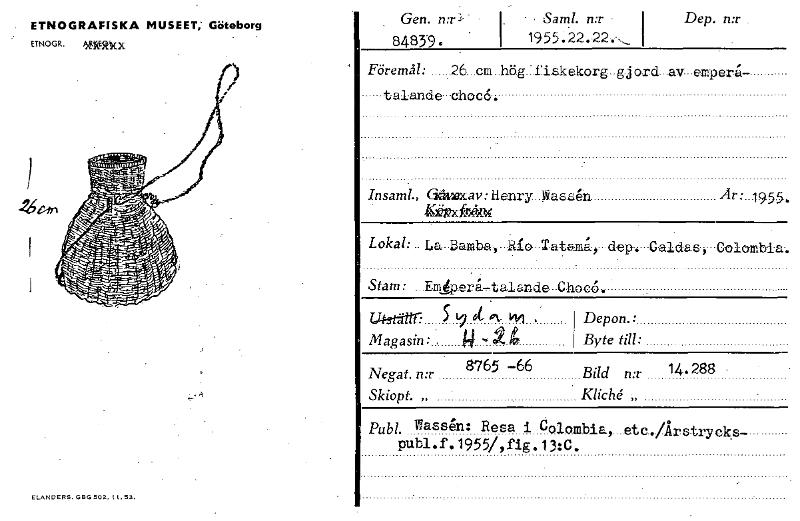 ETNOGRAFISKA MUSEET, Göteborg
ETNOGR.
26 cm
ELANDERS. GBG 502, 11, 53.
Gen. n:r
84839.
Saml. n:r
1955.22.22.
Dep. n:r
Föremål: 26 cm hög fiskekorg gjord av emperá-
talande chocó.
Insaml., Gåva av: Henry Wassén År: 1955.
Köp från
Lokal: La Bamba, Río Tatamá, dep. Caldas, Colombia.
Stam: Emperá-talande Chocó.
Utställt: Sydam. Depon.:
Magasin: H-2b Byte till:
Negat. n:r 8765 -66 Bild n:r 14.288
Skiopt. „ Kliché „
Publ. Wassén: Resa i Colombia, etc./Årstrycks-
publ.f.1955/,fig.13:C.